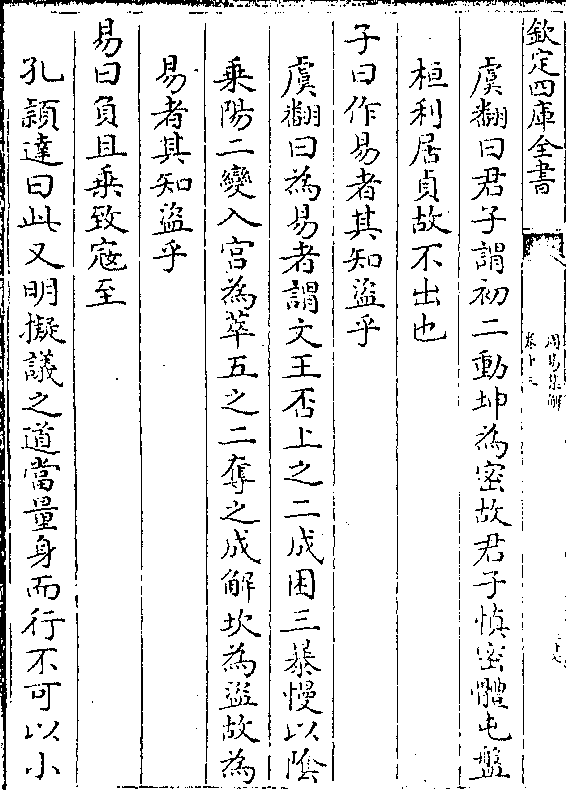 欽定四庫全書
周易集解
卷十三
虞翻曰君子謂初二動坤為密故君子慎密體屯盤
桓利居貞故不出也
子曰作易者其知盜乎
虞翻曰為易者謂文王否上之二成困三暴慢以隂
乗陽二變入宫為萃五之二奪之成解坎為盜故為
易者其知盜乎
易曰負且乗致寇至
孔頴達曰此又明擬議之道當量身而行不可以小